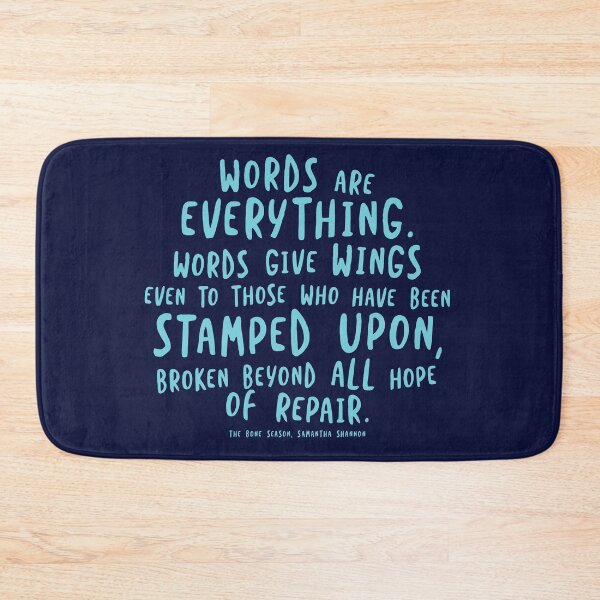 WORDS ARE
EVERYTHING.
WORDS GIVE WINGS
EVEN TO THOSE WHO HAVE BEEN
STAMPED UPON,
BROKEN BEYOND ALL HOPE
OF REPAIR.
THE BONE SEASON, SAMANTHA SHANNON